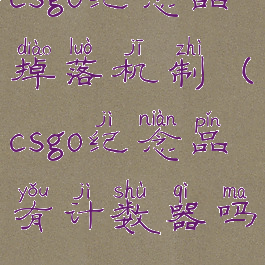 csgo纪念品
diào luò jī zhì
掉落机制（
jì niàn pǐn
csgo纪念品
yǒu jì shù qì ma
有计数器吗,